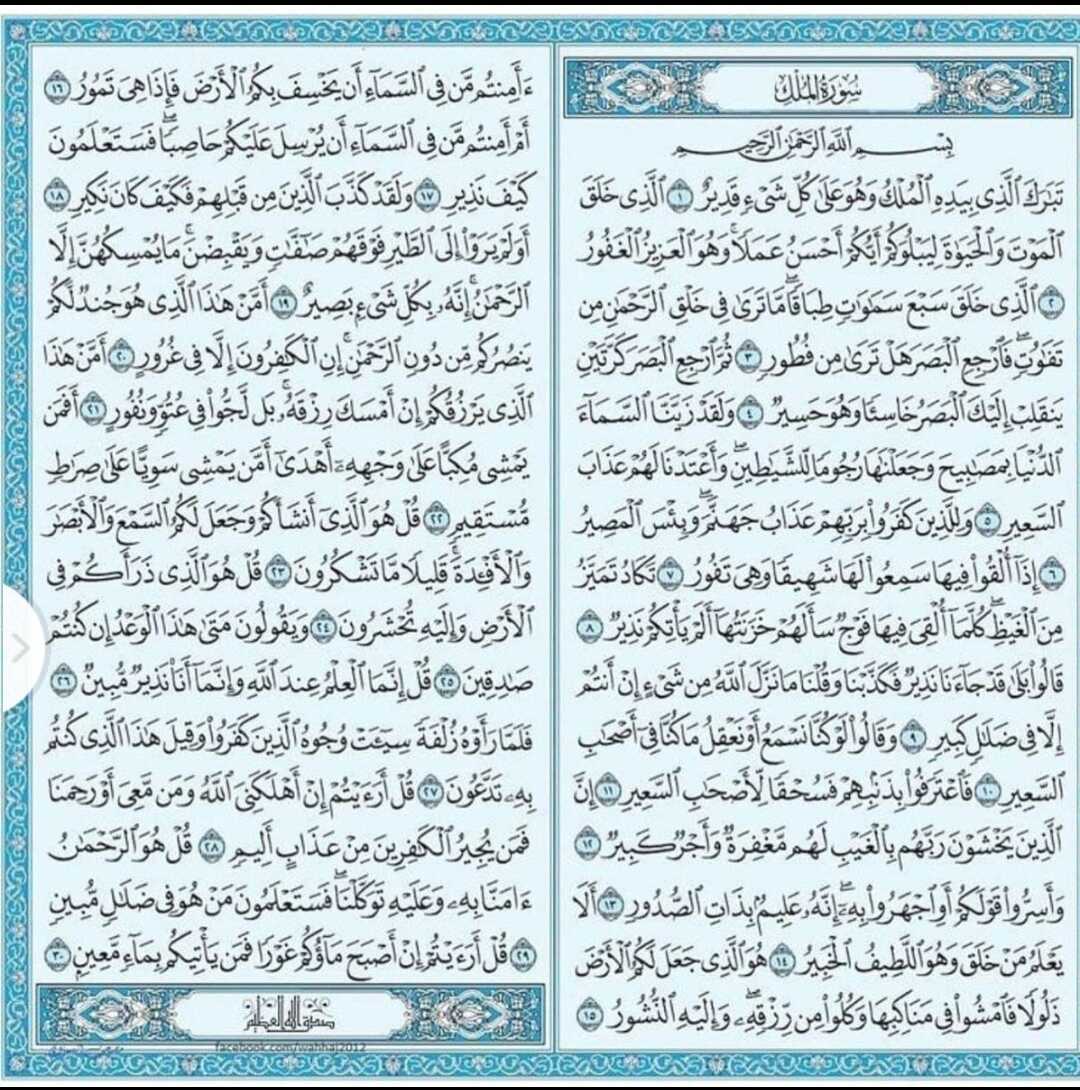 سُورَةُ المُلْكِ
بِسْمِ اللَّهِ الرَّحْمَٰنِ الرَّحِيمِ
تَبَٰرَكَ ٱلَّذِى بِيَدِهِ ٱلْمُلْكُ وَهُوَ عَلَىٰ كُلِّ شَىْءٍ قَدِيرٌ ١ ٱلَّذِى خَلَقَ
ٱلْمَوْتَ وَٱلْحَيَوٰةَ لِيَبْلُوَكُمْ أَيُّكُمْ أَحْسَنُ عَمَلًا ۚ وَهُوَ ٱلْعَزِيزُ ٱلْغَفُورُ
٢ ٱلَّذِى خَلَقَ سَبْعَ سَمَٰوَٰتٍ طِبَاقًا ۖ مَّا تَرَىٰ فِى خَلْقِ ٱلرَّحْمَٰنِ مِن
تَفَٰوُتٍ ۖ فَٱرْجِعِ ٱلْبَصَرَ هَلْ تَرَىٰ مِن فُطُورٍ ٣ ثُمَّ ٱرْجِعِ ٱلْبَصَرَ كَرَّتَيْنِ
يَنقَلِبْ إِلَيْكَ ٱلْبَصَرُ خَاسِئًا وَهُوَ حَسِيرٌ ٤ وَلَقَدْ زَيَّنَّا ٱلسَّمَآءَ
ٱلدُّنْيَا بِمَصَٰبِيحَ وَجَعَلْنَٰهَا رُجُومًا لِّلشَّيَٰطِينِ ۖ وَأَعْتَدْنَا لَهُمْ عَذَابَ
ٱلسَّعِيرِ ٥ وَلِلَّذِينَ كَفَرُوا۟ بِرَبِّهِمْ عَذَابُ جَهَنَّمَ ۖ وَبِئْسَ ٱلْمَصِيرُ
٦ إِذَآ أُلْقُوا۟ فِيهَا سَمِعُوا۟ لَهَا شَهِيقًا وَهِىَ تَفُورُ ٧ تَكَادُ تَمَيَّزُ
مِنَ ٱلْغَيْظِ ۖ كُلَّمَآ أُلْقِىَ فِيهَا فَوْجٌ سَأَلَهُمْ خَزَنَتُهَآ أَلَمْ يَأْتِكُمْ نَذِيرٌ ٨
قَالُوا۟ بَلَىٰ قَدْ جَآءَنَا نَذِيرٌ فَكَذَّبْنَا وَقُلْنَا مَا نَزَّلَ ٱللَّهُ مِن شَىْءٍ إِنْ أَنتُمْ
إِلَّا فِى ضَلَٰلٍ كَبِيرٍ ٩ وَقَالُوا۟ لَوْ كُنَّا نَسْمَعُ أَوْ نَعْقِلُ مَا كُنَّا فِىٓ أَصْحَٰبِ
ٱلسَّعِيرِ ١٠ فَٱعْتَرَفُوا۟ بِذَنۢبِهِمْ فَسُحْقًا لِّأَصْحَٰبِ ٱلسَّعِيرِ ١١ إِنَّ
ٱلَّذِينَ يَخْشَوْنَ رَبَّهُم بِٱلْغَيْبِ لَهُم مَّغْفِرَةٌ وَأَجْرٌ كَبِيرٌ ١٢
وَأَسِرُّوا۟ قَوْلَكُمْ أَوِ ٱجْهَرُوا۟ بِهِۦٓ ۖ إِنَّهُۥ عَلِيمٌۢ بِذَاتِ ٱلصُّدُورِ ١٣ أَلَا
يَعْلَمُ مَنْ خَلَقَ وَهُوَ ٱللَّطِيفُ ٱلْخَبِيرُ ١٤ هُوَ ٱلَّذِى جَعَلَ لَكُمُ ٱلْأَرْضَ
ذَلُولًا فَٱمْشُوا۟ فِى مَنَاكِبِهَا وَكُلُوا۟ مِن رِّزْقِهِۦ ۖ وَإِلَيْهِ ٱلنُّشُورُ ١٥
ءَأَمِنتُم مَّن فِى ٱلسَّمَآءِ أَن يَخْسِفَ بِكُمُ ٱلْأَرْضَ فَإِذَا هِىَ تَمُورُ ١٦
أَمْ أَمِنتُم مَّن فِى ٱلسَّمَآءِ أَن يُرْسِلَ عَلَيْكُمْ حَاصِبًا ۖ فَسَتَعْلَمُونَ
كَيْفَ نَذِيرِ ١٧ وَلَقَدْ كَذَّبَ ٱلَّذِينَ مِن قَبْلِهِمْ فَكَيْفَ كَانَ نَكِيرِ ١٨
أَوَلَمْ يَرَوْا۟ إِلَى ٱلطَّيْرِ فَوْقَهُمْ صَٰٓفَّٰتٍ وَيَقْبِضْنَ ۚ مَا يُمْسِكُهُنَّ إِلَّا
ٱلرَّحْمَٰنُ ۚ إِنَّهُۥ بِكُلِّ شَىْءٍۭ بَصِيرٌ ١٩ أَمَّنْ هَٰذَا ٱلَّذِى هُوَ جُندٌ لَّكُمْ
يَنصُرُكُم مِّن دُونِ ٱلرَّحْمَٰنِ ۚ إِنِ ٱلْكَٰفِرُونَ إِلَّا فِى غُرُورٍ ٢٠ أَمَّنْ هَٰذَا
ٱلَّذِى يَرْزُقُكُمْ إِنْ أَمْسَكَ رِزْقَهُۥ ۚ بَل لَّجُّوا۟ فِى عُتُوٍّ وَنُفُورٍ ٢١ أَفَمَن
يَمْشِى مُكِبًّا عَلَىٰ وَجْهِهِۦٓ أَهْدَىٰٓ أَمَّن يَمْشِى سَوِيًّا عَلَىٰ صِرَٰطٍ
مُّسْتَقِيمٍ ٢٢ قُلْ هُوَ ٱلَّذِىٓ أَنشَأَكُمْ وَجَعَلَ لَكُمُ ٱلسَّمْعَ وَٱلْأَبْصَٰرَ
وَٱلْأَفْـِٔدَةَ ۖ قَلِيلًا مَّا تَشْكُرُونَ ٢٣ قُلْ هُوَ ٱلَّذِى ذَرَأَكُمْ فِى
ٱلْأَرْضِ وَإِلَيْهِ تُحْشَرُونَ ٢٤ وَيَقُولُونَ مَتَىٰ هَٰذَا ٱلْوَعْدُ إِن كُنتُمْ
صَٰدِقِينَ ٢٥ قُلْ إِنَّمَا ٱلْعِلْمُ عِندَ ٱللَّهِ وَإِنَّمَآ أَنَا۠ نَذِيرٌ مُّبِينٌ ٢٦
فَلَمَّا رَأَوْهُ زُلْفَةً سِيٓـَٔتْ وُجُوهُ ٱلَّذِينَ كَفَرُوا۟ وَقِيلَ هَٰذَا ٱلَّذِى كُنتُم
بِهِۦ تَدَّعُونَ ٢٧ قُلْ أَرَءَيْتُمْ إِنْ أَهْلَكَنِىَ ٱللَّهُ وَمَن مَّعِىَ أَوْ رَحِمَنَا
فَمَن يُجِيرُ ٱلْكَٰفِرِينَ مِنْ عَذَابٍ أَلِيمٍ ٢٨ قُلْ هُوَ ٱلرَّحْمَٰنُ
ءَامَنَّا بِهِۦ وَعَلَيْهِ تَوَكَّلْنَا ۖ فَسَتَعْلَمُونَ مَنْ هُوَ فِى ضَلَٰلٍ مُّبِينٍ
٢٩ قُلْ أَرَءَيْتُمْ إِنْ أَصْبَحَ مَآؤُكُمْ غَوْرًا فَمَن يَأْتِيكُم بِمَآءٍ مَّعِينٍۭ ٣٠
صدق الله العظيم
facebook.com/wahhaj2012